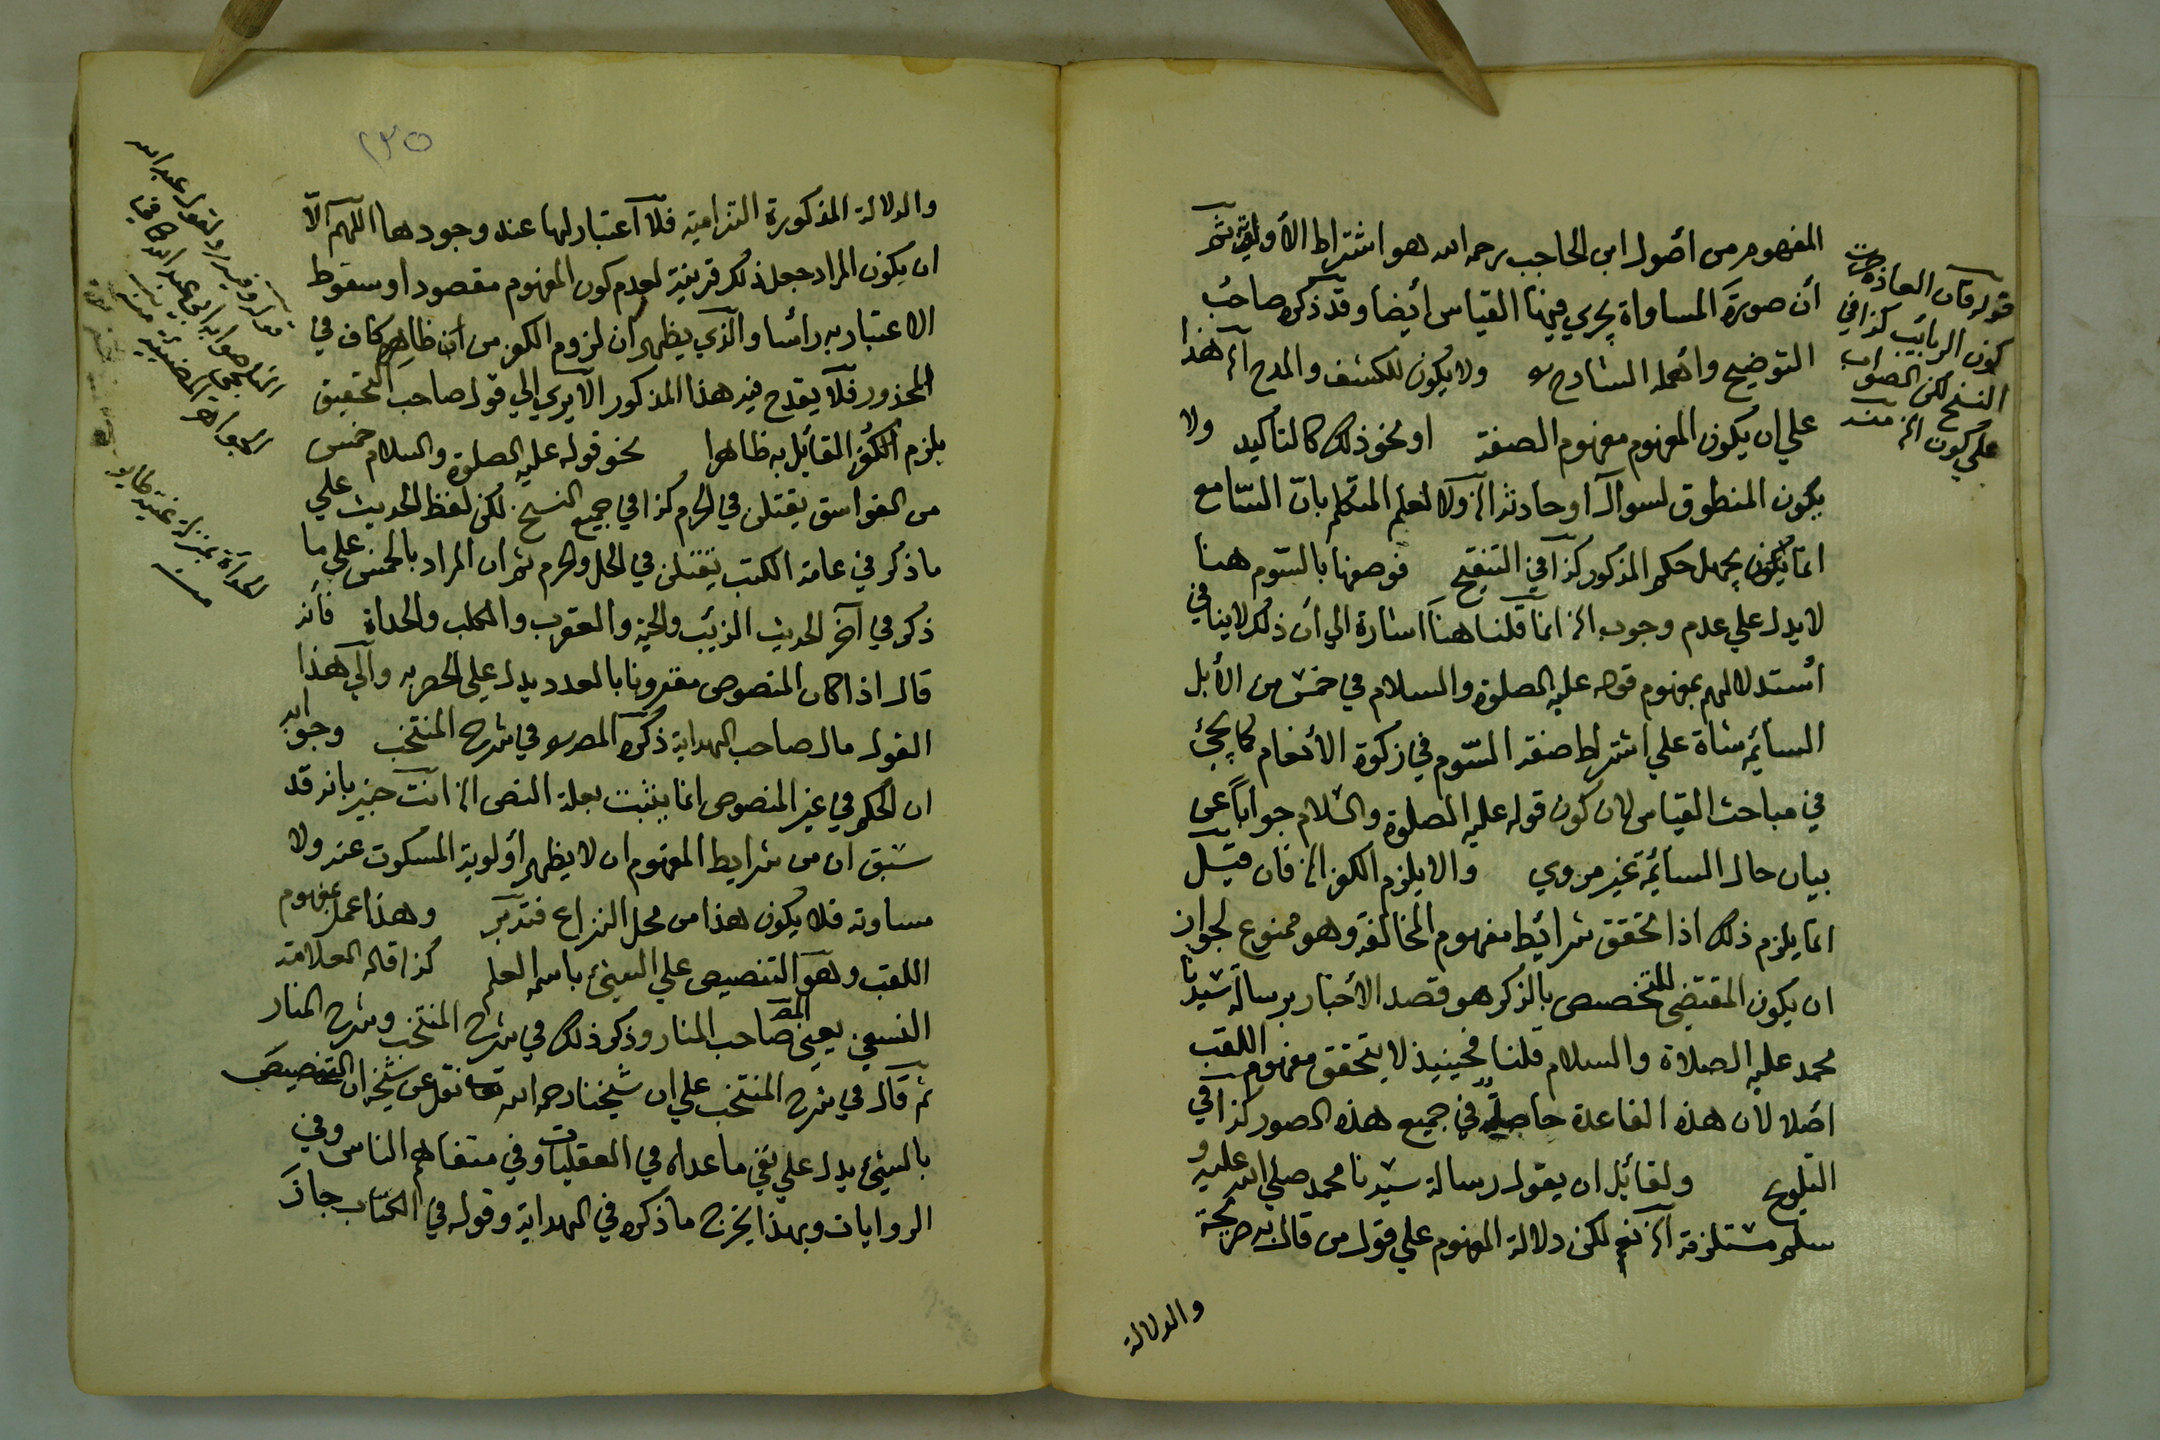 المفهوم من اصول ابن الحاجب رحمه الله هو اشتراط الأولوية ثم
أن صورة المساواة يجري فيها القياس أيضا وقد ذكره صاحب
التوضيح وأهمله الشارح ولا يكون للكشف والمدح الخ هذا
علي ان يكون المفهوم مفهوم الصفة او نحو ذلك كالتأكيد ولا
يكون المنطوق لسوال او حادثة الخ ولا لعلم المتكلم بانّ السّامع
انما يجهل حكم المذكور كذا في التنقيح فوصفها بالسّوم هنا
لا يدل علي عدم وجوب الخ انما قلنا هنا اشارة الي أن ذلك لا ينافي
أستدلالهم بمفهوم قوله عليه الصلوة والسلام في خمس من الأبل
السائمة شاة علي اشتراط صفة السّوم في زكوة الأنعام كما يجئ
في مباحث القياس لان كون قوله عليه الصلوة والسّلام جواباً عن
بيان حال السائمة غير مروي والا يلزم الكفر الخ فان قيل
انما يلزم ذلك اذا تحقق شرائط مفهوم المخالفة وهو ممنوع لجواز
ان يكون المقتضي للتخصيص بالذكر هو قصد الأخبار برسالة سيدنا
محمد عليه الصلاة والسلام قلنا فحينيذ لا يتحقق مفهوم اللقب
اصلا لأن هذه الفائدة حاصلة في جميع هذه الصور كذا في
التلويح ولقائل ان يقول رسالة سيّدنا محمد صلي الله عليه و
سلم مستلزمة الخ نعم لكن دلالة المفهوم علي قول من قال به
والدلالة
قوله فان العادة
كون الربائب كذا في
النسخ لكن الصواب
علي كون الخ منه
٢٣٥
والدلالة المذكورة التزامية فلا أعتبار لها عند وجودها اللهم الّا
ان يكون المراد جعل ذلك قرينة لعدم كون المفهوم مقصودا وسقوط
الاعتبار به رأسا والّذي يظهر ان لزوم الكفر من أن ظاهره كاف في
المحذور فلا يقدح فيه هذا المذكور الا يري الي قول صاحب التحقيق
يلزم الكفر القائل به ظاهرا نحو قوله عليه الصلوة والسلام خمس
من الفواسق يقتلن في الحرم كذا في جميع النسخ لكن لفظ الحديث علي
ما ذكر في عامة الكتب يقتلن في الحل والحرم ثم ان المراد بالخمس علي ما
ذكر في آخر الحديث الذئب والحية والعقرب والكلب والحداة فأنه
قال اذا كان المنصوص مقرونا بالعدد يدل علي الحصر به والي هذا
القول مال صاحب الهداية ذكره المصر في شرح المنتخب وجوابه
ان الحكم في غير المنصوص انما يثبت بعلة النص الخ انت خبير بانه قد
سبق ان من شرايط المفهوم ان لا يظهر أولوية المسكوت عنه ولا
مساوته فلا يكون هذا من محل النزاع فتدبّر وهذا عمل بمفهوم
اللقب وهو التنصيص علي الشيئ باسمه العلم كذا قاله العلامة
النسفي يعني المص صاحب المنار وذكر ذلك في شرح المنتخب وشرح المنار
ثم قال في شرح المنتخب علي ان شيخنا رحمه الله نقل عن شيخه ان التخصيص
بالشيئ يدل علي نفي ما عداه في العقليات وفي متفاهم الناس وفي
الروايات وبهذا يخرج ما ذكره في الهداية وقوله في الكتاب جاز